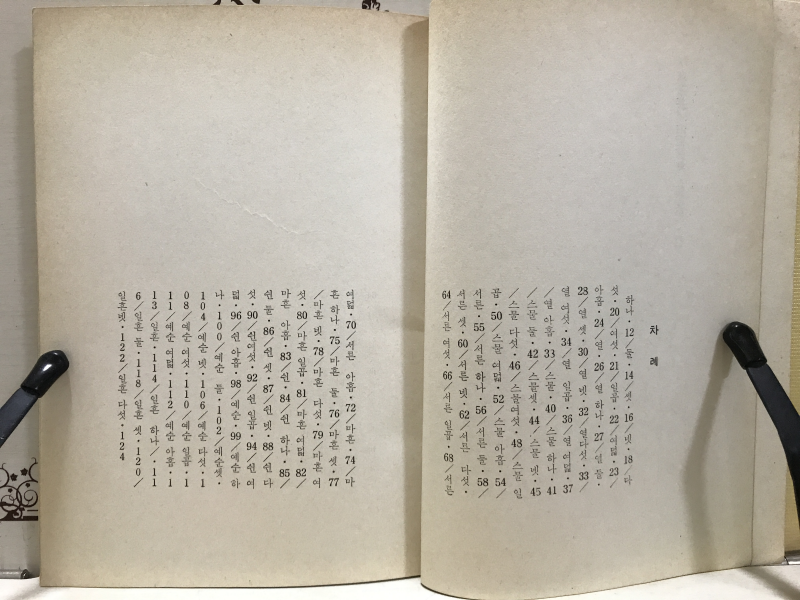 차 례
하나·12／둘·14／셋·16／넷·18／다
섯·20／여섯·21／일곱·22／여덟·23／
아홉·24／열·26／열 하나·27／열 둘·
28／열 셋·30／열 넷·32／열다섯·33／
열 여섯·34／열 일곱·36／열 여덟·37
／열 아홉·33／스물·40／스물 하나·41
／스물 둘·42／스물셋·44／스물 넷·45
／스물 다섯·46／스물여섯·48／스물 일
곱·50／스물 여덟·52／스물 아홉·54／
서른·55／서른 하나·56／서른 둘·58／
서른 셋·60／서른 넷·62／서른 다섯·
64／서른 여섯·66／서른 일곱·68／서른
여덟·70／서른 아홉·72／마흔·74／마
흔 하나·75／마흔 둘·76／마흔 셋 77
／마흔 넷·78／마흔 다섯·79／마흔 여
섯·80／마흔 일곱·81／마흔 여덟·82／
마흔 아홉·83／쉰·84／쉰 하나·85／
쉰 둘·86／쉰 셋·87／쉰 넷·88／쉰 다
섯·90／쉰여섯·92／쉰 일곱·94／쉰 여
덟·96／쉰 아홉·98／예순·99／예순 하
나·100／예순 둘·102／예순셋·
104／예순넷·106／예순 다섯·1
08／예순 여섯·110／예순 일곱·1
11／예순 여덟·112／예순 아홉·1
13／일흔·114／일흔 하나／·11
6／일흔 둘·118／일흔 셋·120／
일흔넷·122／일흔 다섯·124